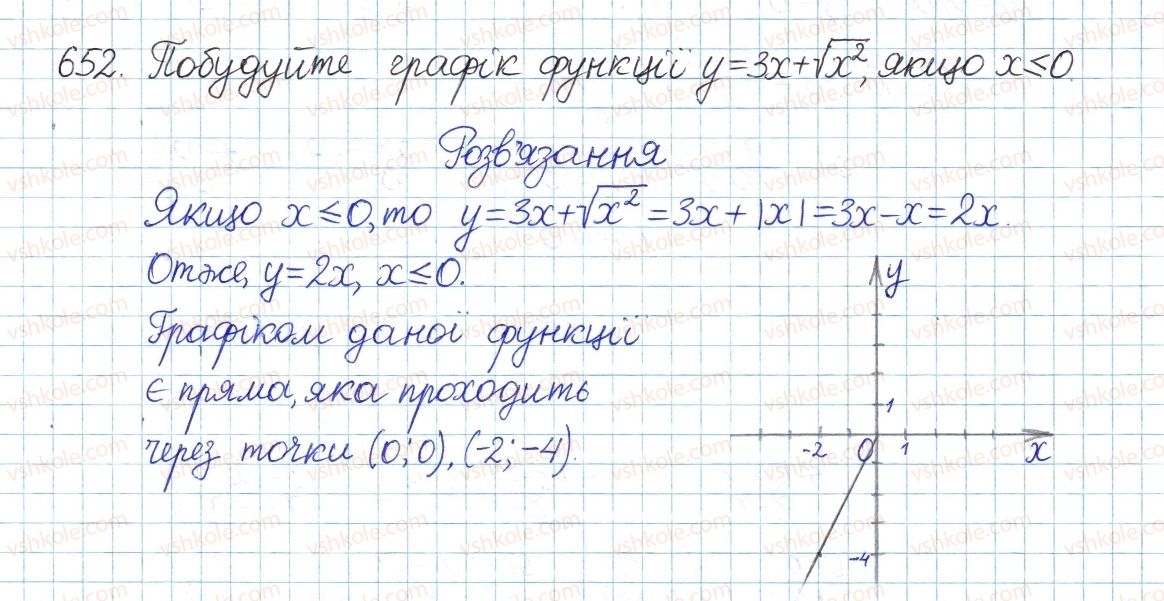 652. Побудуйте графік функції y=3x+√x², якщо x≤0.
Розв'язання
Якщо x≤0, то y=3x+√x²=3x+|x|=3x-x=2x.
Отже, y=2x, x≤0.
Графіком даної функції
є пряма, яка проходить
через точки (0;0), (-2;-4).
y
1
-2 0 1 x
-4
vshkole.com